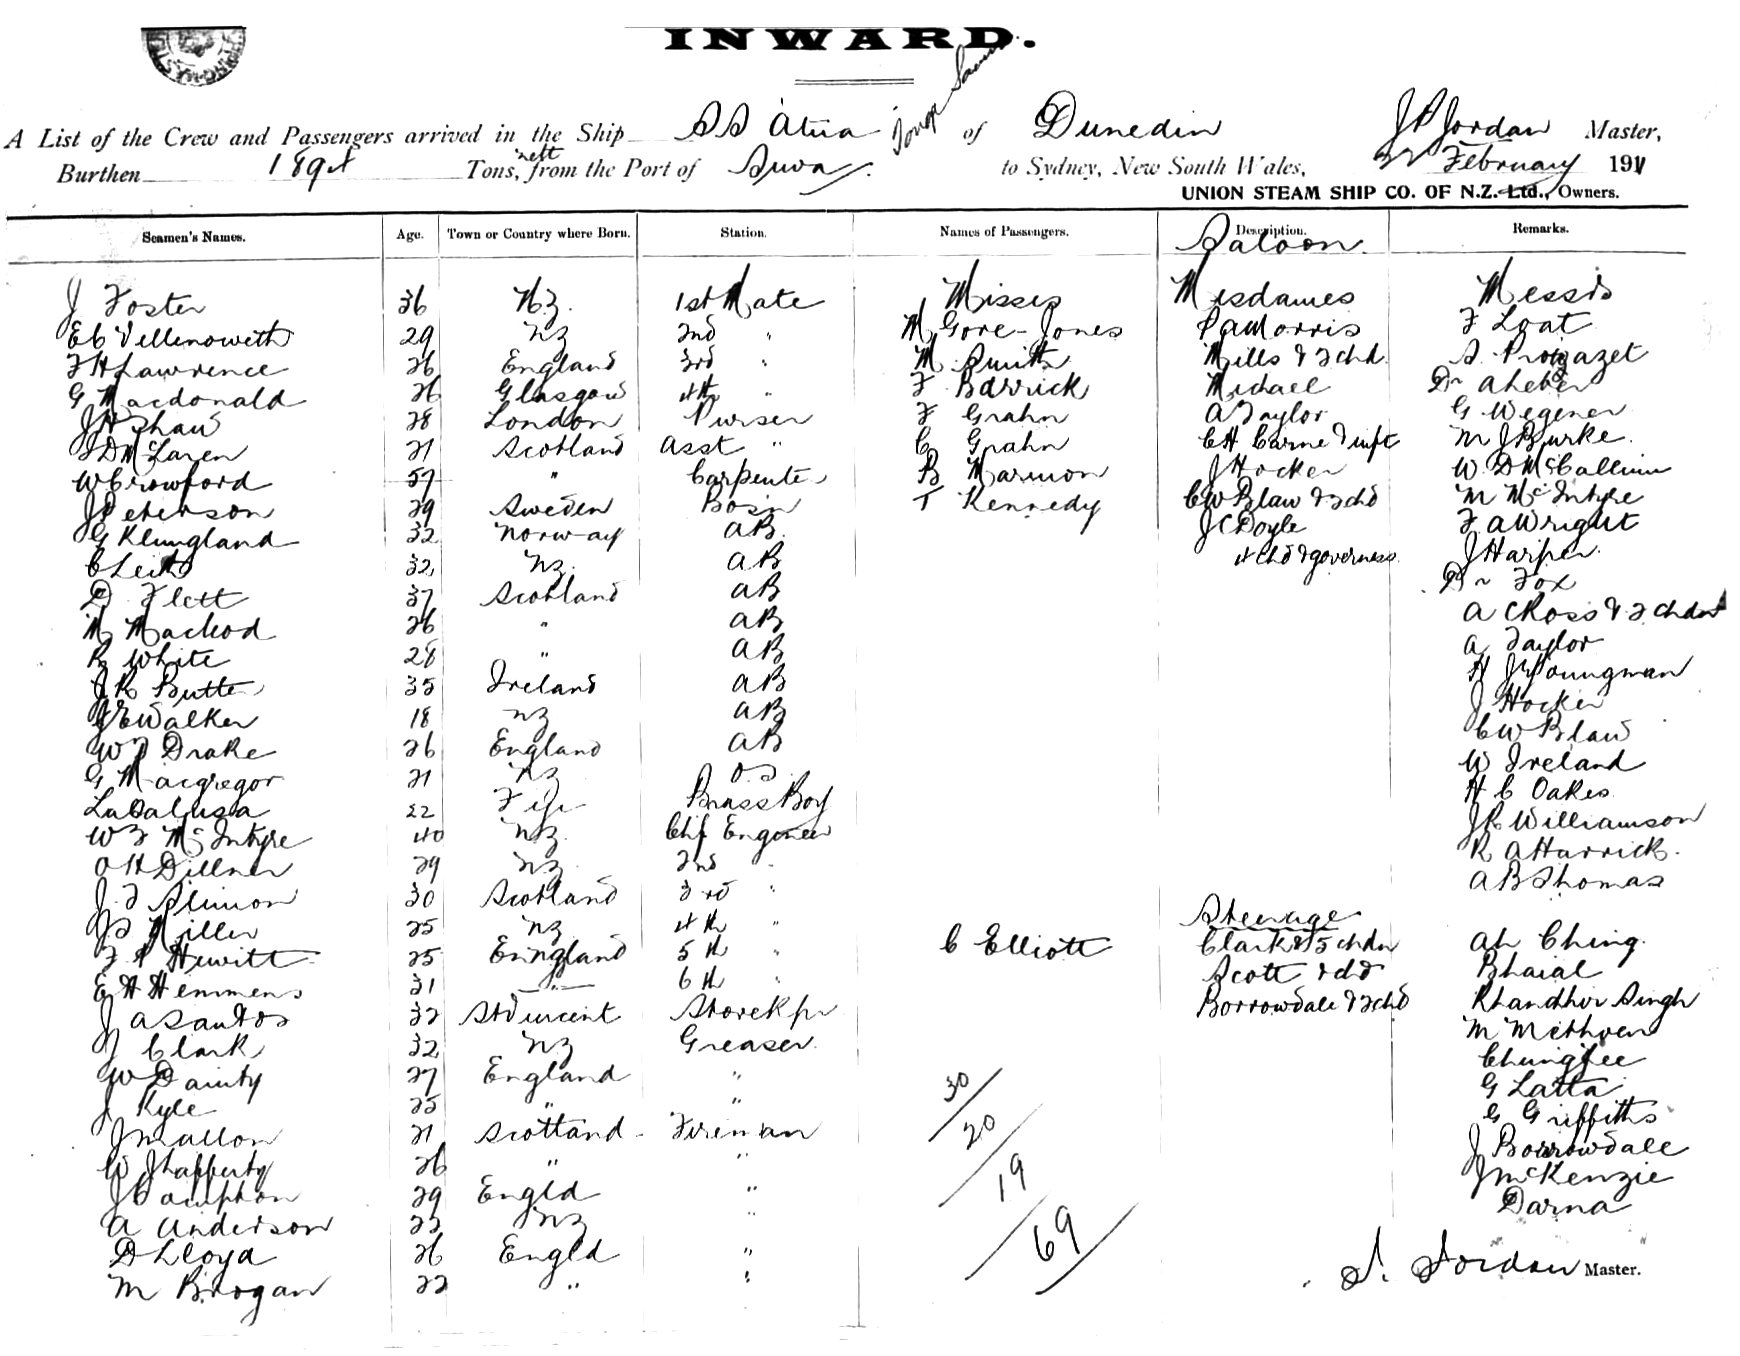 INWARD.
A List of the Crew and Passengers arrived in the Ship SS Atua of Dunedin J P Jordan Master,
Burthen Tons, nett from the Port of Suva to Sydney, New South Wales, February 1911
UNION STEAM SHIP CO. OF N.Z. Ltd., Owners.
Seamen's Names. Age. Town or Country where Born. Station. Names of Passengers. Description. Remarks.
Saloon.
J Foster 36 NZ. 1st Mate Misses Mesdames Messrs
E C Vellenoweth 29 NZ 2nd " M Gore-Jones Morris F Loat
F H Lawrence 26 England 3rd " M Smith Mills & 2 chd. S.
G Macdonald 26 Glasgow 4th " F Barrick Michael Dr
J H Shaw 28 London Purser F Grahn A Taylor G Wegener
McLaren 21 Scotland Asst " C Grahn C H Carne & inft M J Burke.
W Crowford 57 " Carpenter B Marmon J Hocker W D McCallum
J Peterson 29 Sweden Bosn T Kennedy C W Blaw & 2 chd M McIntyre
G Klungland 32 Norway AB. J C Doyle F A Wright
C Leith 32 NZ. AB 4 chd & governess J Harper.
D Flett 37 Scotland AB Dr Fox
M Macleod 26 " AB A C Ross & 2 chdn
R White 28 " AB A Taylor
J R Butter 35 Ireland AB H J Youngman
Walker 18 NZ AB J Hocker
Drake 26 England AB C W Blaw
G Macgregor 21 NZ O S. W Ireland
22 Fiji Brass Boy H C Oakes
W F McIntyre 40 NZ. Chf Engineer J R Williamson
O H Dillner 29 NZ. 2nd " R A Harrick.
Slimon 30 Scotland 3rd " A B Thomas
Steerage
Miller 25 NZ. 4th " C Elliott Clark & 5 chdn Ah Ching.
Hewitt 25 England 5th " Scott & chd Bhaial
E H Hemmens 31 " 6th " Borrowdale & 2 chd Khandhir Singh
J A Santos 32 St Vincent Storekpr M Methven
J Clark 32 NZ Greaser.
W Dainty 27 England " G Latta
J Kyle 25 " " G Griffiths
J Mallon 21 Scotland - Fireman J Borrowdale
W J Lafferty 26 " " J McKenzie
29 Engld " Darna
A Anderson 22 NZ "
D Lloyd 26 Engld "
M Brogan 22 " "
30
20
19
69
Jordan Master.